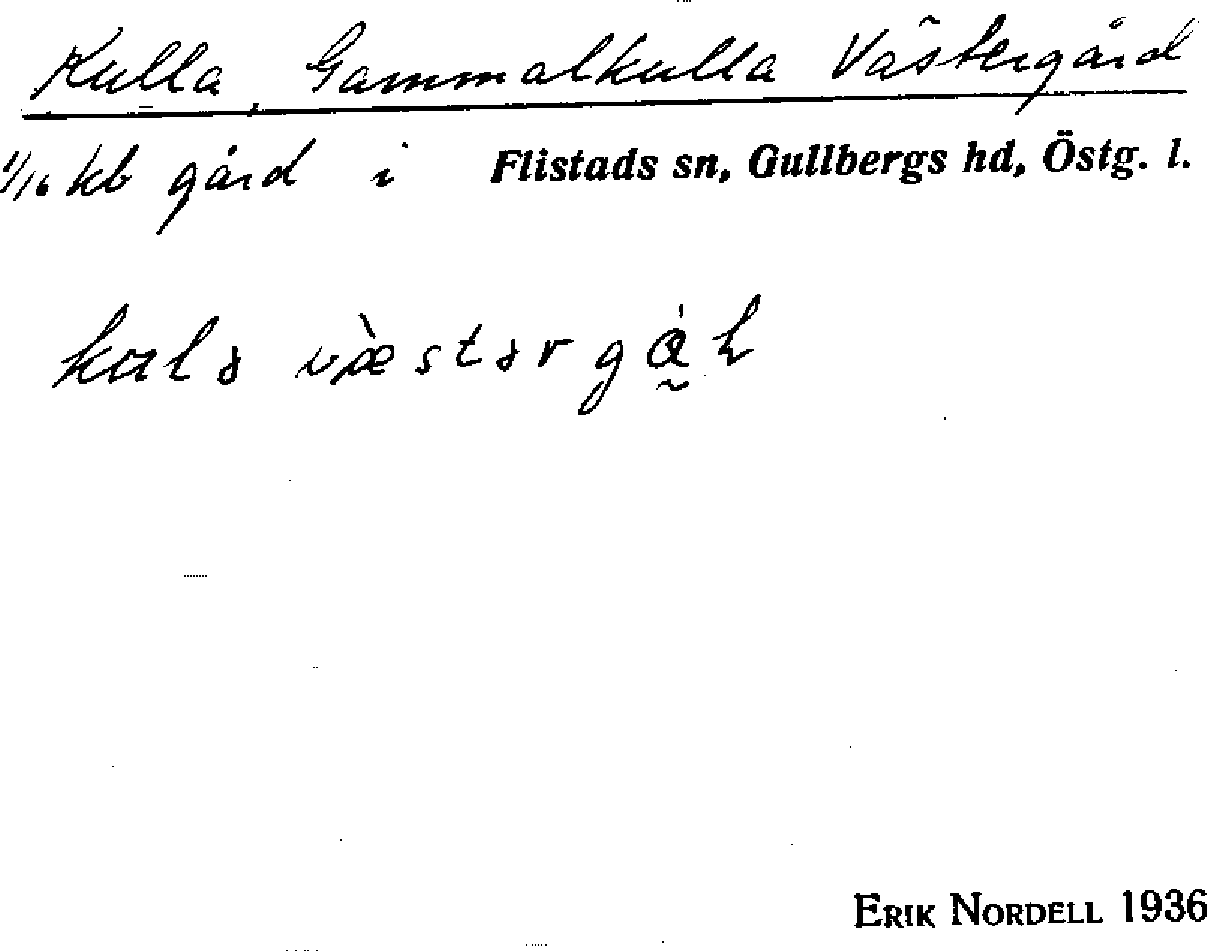 Kulla, Gammalkulla Västergård
1/16 kb gård i Flistads sn, Gullbergs hd, Östg. l.
kɑlə væ̀stərgɑ̰́ɫ
ERIK NORDELL 1936